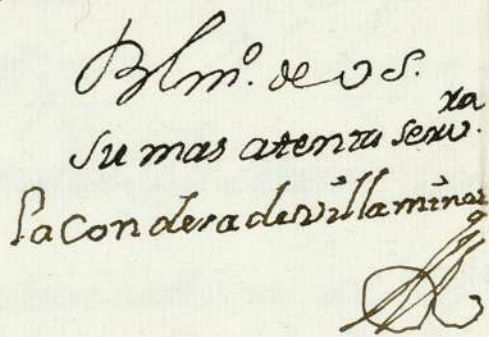 Blmº. de V S.
su mas atenta serv.ra
La Condesa de Villamina